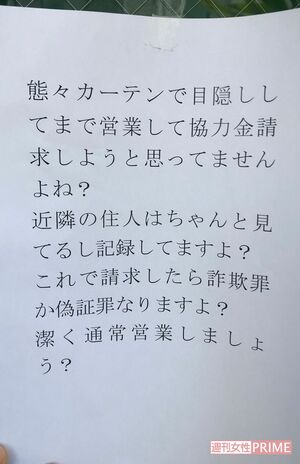 態々カーテンで目隠しし
てまで営業して協力金請
求しようと思ってません
よね？
近隣の住人はちゃんと見
てるし記録してますよ？
これで請求したら詐欺罪
か偽証罪なりますよ？
潔く通常営業しましょ
う？
週刊女性PRIME